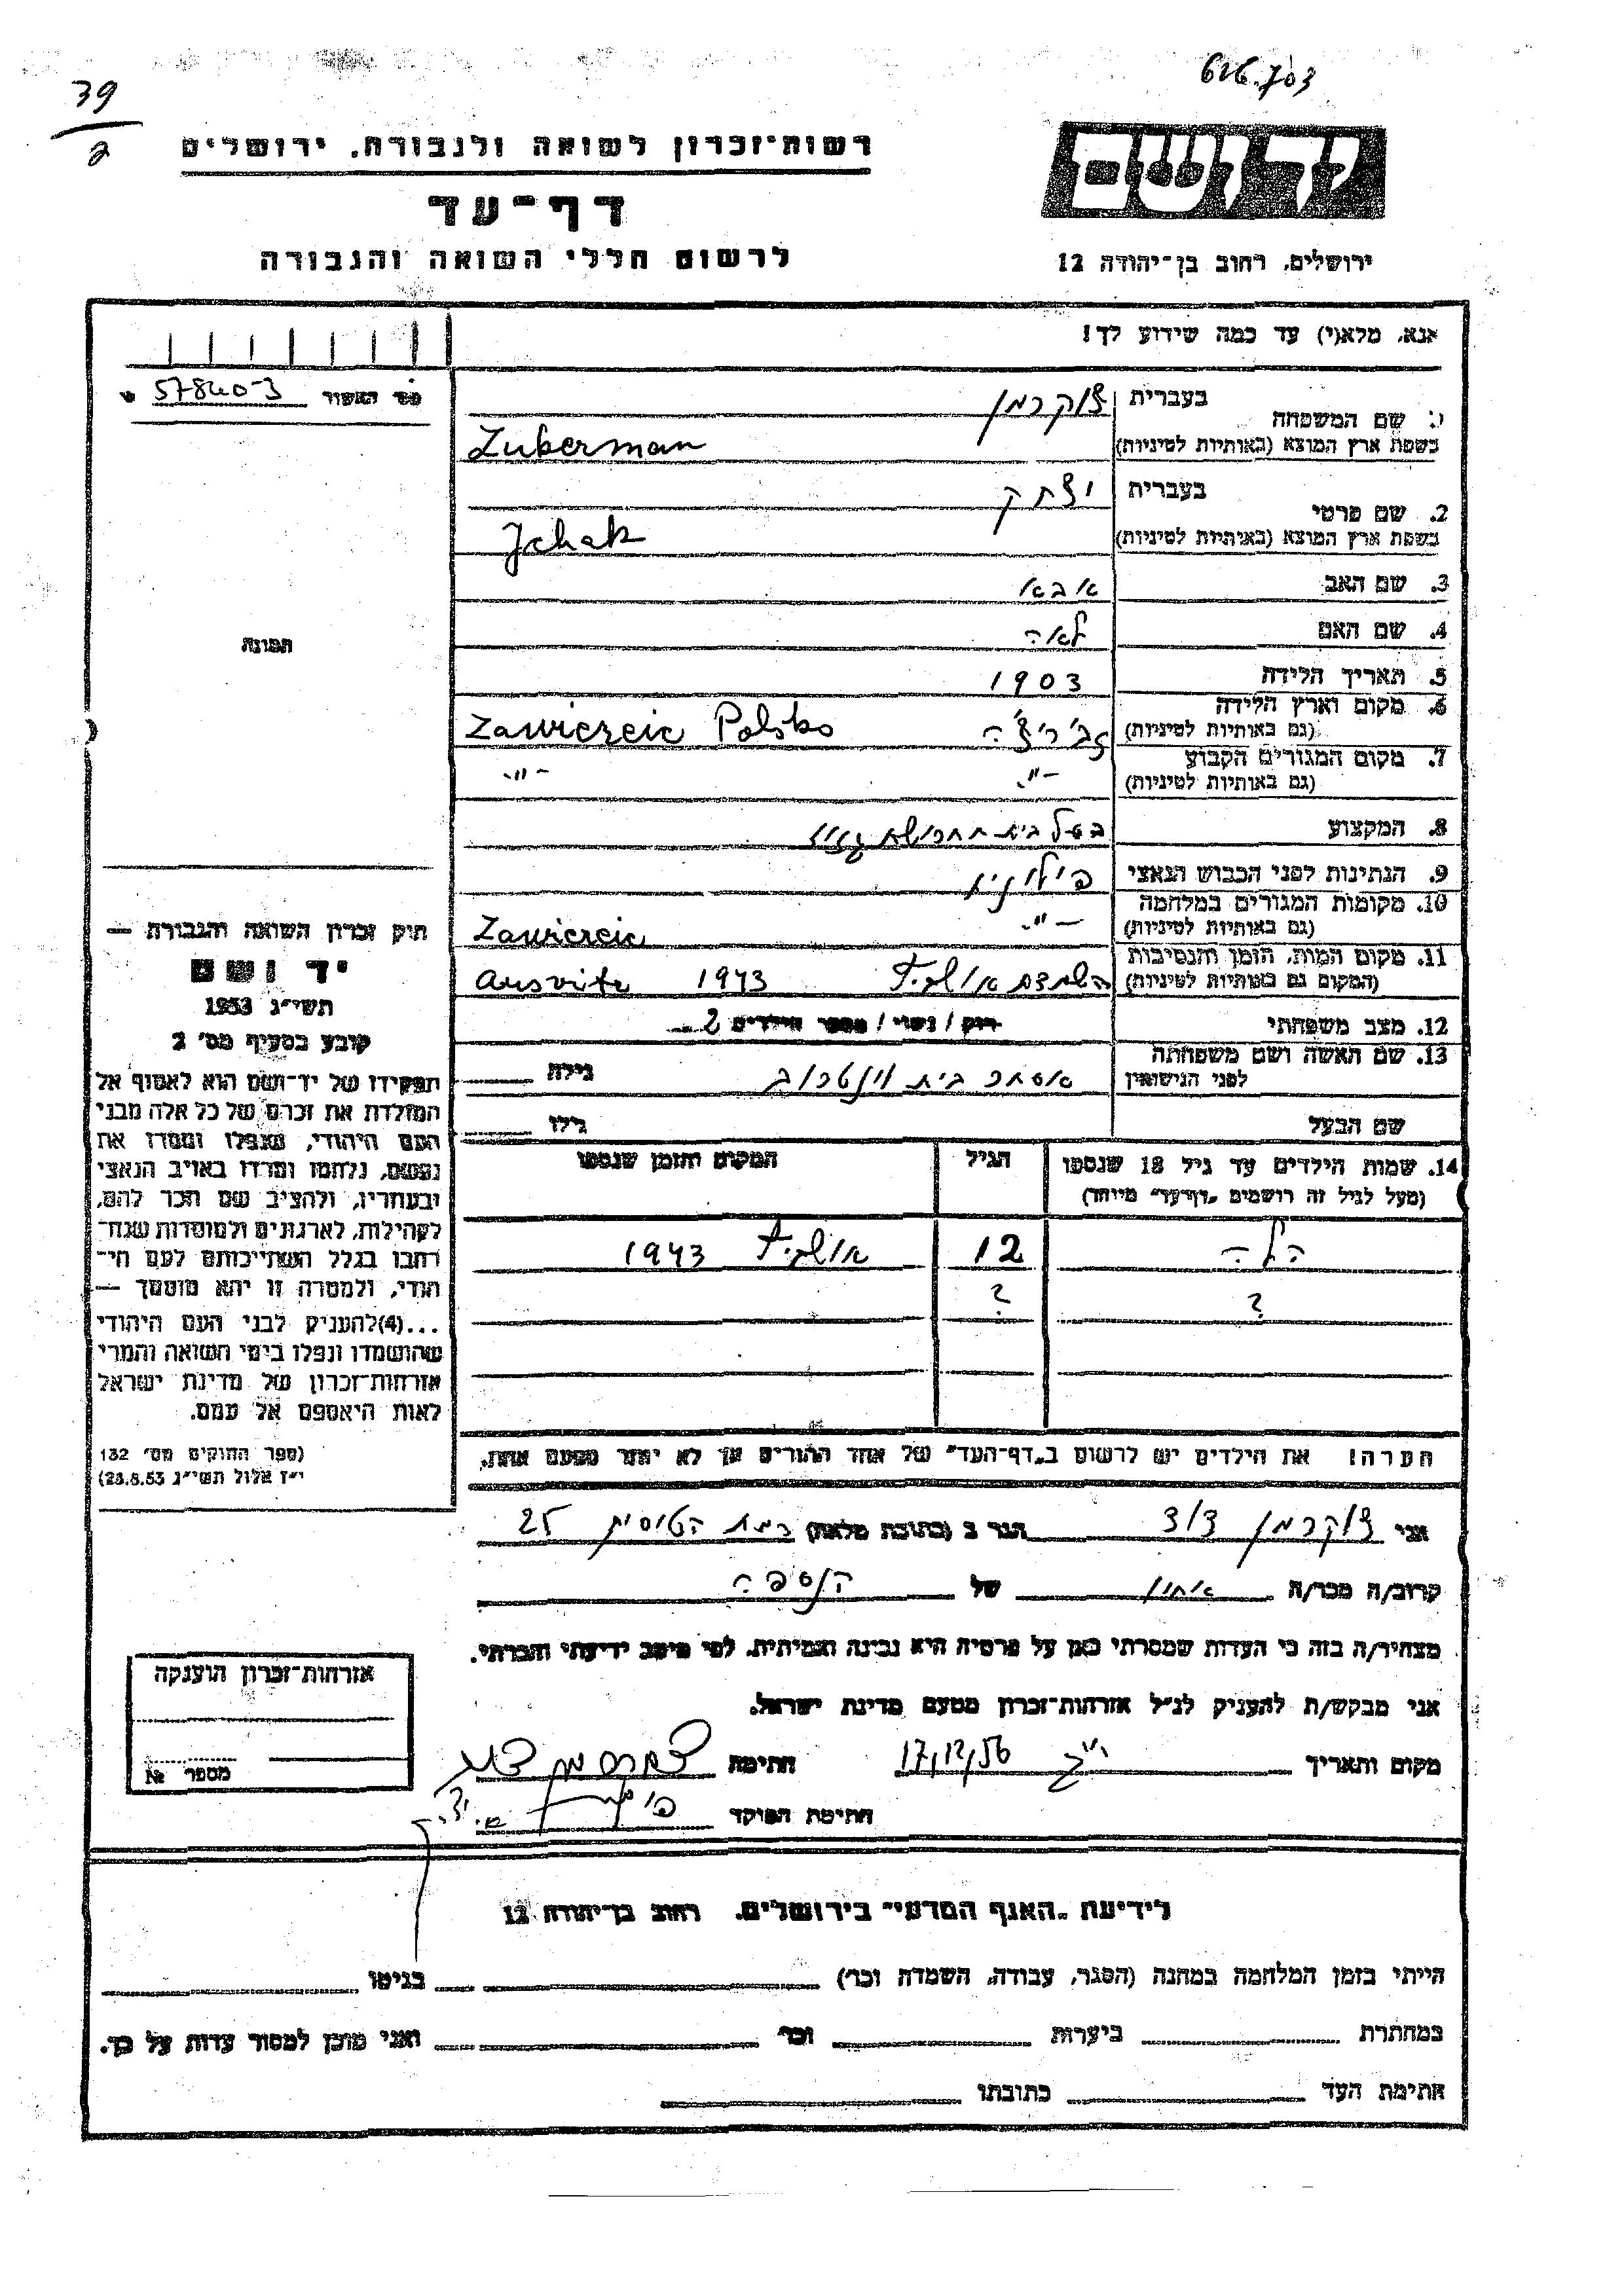 39
2
616.703
רשות־זכרון לשואה ולגבורה, ירושלים
דף־עד
לרשום חללי השואה והגבורה
יד ושם
ירושלים, רחוב בן־יהודה 12
אנא, מלא(י) עד כמה שידוע לך!
מס׳ האשור 578403
1. שם המשפחה
בעברית צוקרמן
בשפת ארץ המוצא (באותיות לטיניות) Zukerman
2. שם פרטי
בעברית יצחק
בשפת ארץ המוצא (באותיות לטיניות) Jchak
3. שם האב אבא
4. שם האם לאה
תמונה
5. תאריך הלידה 1903
6. מקום וארץ הלידה
(גם באותיות לטיניות) Zawiercie Polsko
7. מקום המגורים הקבוע
(גם באותיות לטיניות) -״- -״-
8. המקצוע בעל בית חרושת
9. הנתינות לפני הכבוש הנאצי פילונית
10. מקומות המגורים במלחמה
(גם באותיות לטיניות) -״- Zawiercie
11. מקום המות, הזמן והנסיבות
(המקום גם באותיות לטיניות) 1943 Ausvitz
12. מצב משפחתי רוק / נשוי / מספר הילדים 2
13. שם האשה ושם משפחתה
לפני הנישואין אסתר בית וינטרוב גילה
שם הבעל גילו
14. שמות הילדים עד גיל 18 שנספו
(מעל לגיל זה רושמים „דף־עד״ מיוחד)
הגיל
המקום והזמן שנספו
הלה 12 1943
? ?
הערה! את הילדים יש לרשום ב„דף־העד״ של אחד ההורים אך לא יותר מפעם אחת.
חוק זכרון השואה והגבורה —
יד ושם
תשי״ג 1953
קובע בסעיף מס׳ 2
תפקידו של יד־ושם הוא לאסוף אל
המולדת את זכרם של כל אלה מבני
העם היהודי, שנפלו ומסרו את
נפשם, נלחמו ומרדו באויב הנאצי
ובעוזריו, ולהציב שם וזכר להם,
לקהילות, לארגונים ולמוסדות שנח־
רבו בגלל השתייכותם לעם הי־
הודי, ולמטרה זו יהא מוסמך —
...(4)להעניק לבני העם היהודי
שהושמדו ונפלו בימי השואה והמרי
אזרחות־זכרון של מדינת ישראל
לאות היאספם אל עמם.
(ספר החוקים מס׳ 132
י״ז אלול תשי״ג 28.8.53)
אני צוקרמן דוד הגר ב (כתובת מלאה) רמת הטייסים 25
קרוב/ה מכר/ה אחיו של הנספה
מצהיר/ה בזה כי העדות שמסרתי כאן על פרטיה היא נכונה ואמיתית, לפי מיטב ידיעתי והכרתי.
אני מבקש/ת להעניק לנ״ל אזרחות־זכרון מטעם מדינת ישראל.
מקום ותאריך 17/12/56 חתימה צוקרמן דוד
חתימת הפוקד
אזרחות־זכרון הוענקה
מספר №
לידיעת „האגף המדעי״ בירושלים, רחוב בן־יהודה 12
הייתי בזמן המלחמה במחנה (הסגר, עבודה, השמדה וכר׳) בגיטו
במחתרת ביערות וכר׳ ואני מוכן למסור עדות על כך.
חתימת העד כתובתו